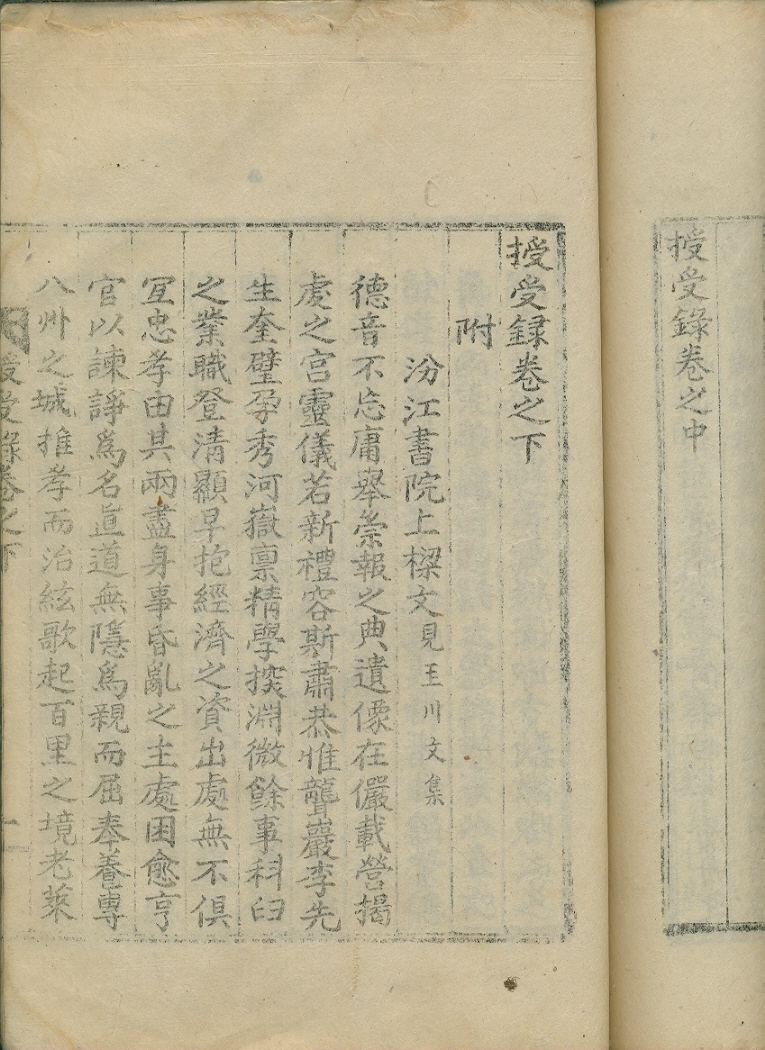 授受録卷之中
授受録卷之下
附
汾江書院上樑文見玉川文集
德音不忘庸擧崇報之典遺像在儼載營揭
虔之宮靈儀若新禮容斯肅恭惟聾巖李先
生奎璧孕秀河嶽稟精學探淵微餘事科臼
之業職登清顯早抱經濟之資出處無不俱
宜忠孝由其兩盡身事昏亂之主處困愈亨
官以諫諍爲名直道無隱爲親而屈奉養專
八州之城推孝而治絃歌起百里之境老萊
授受録卷之下